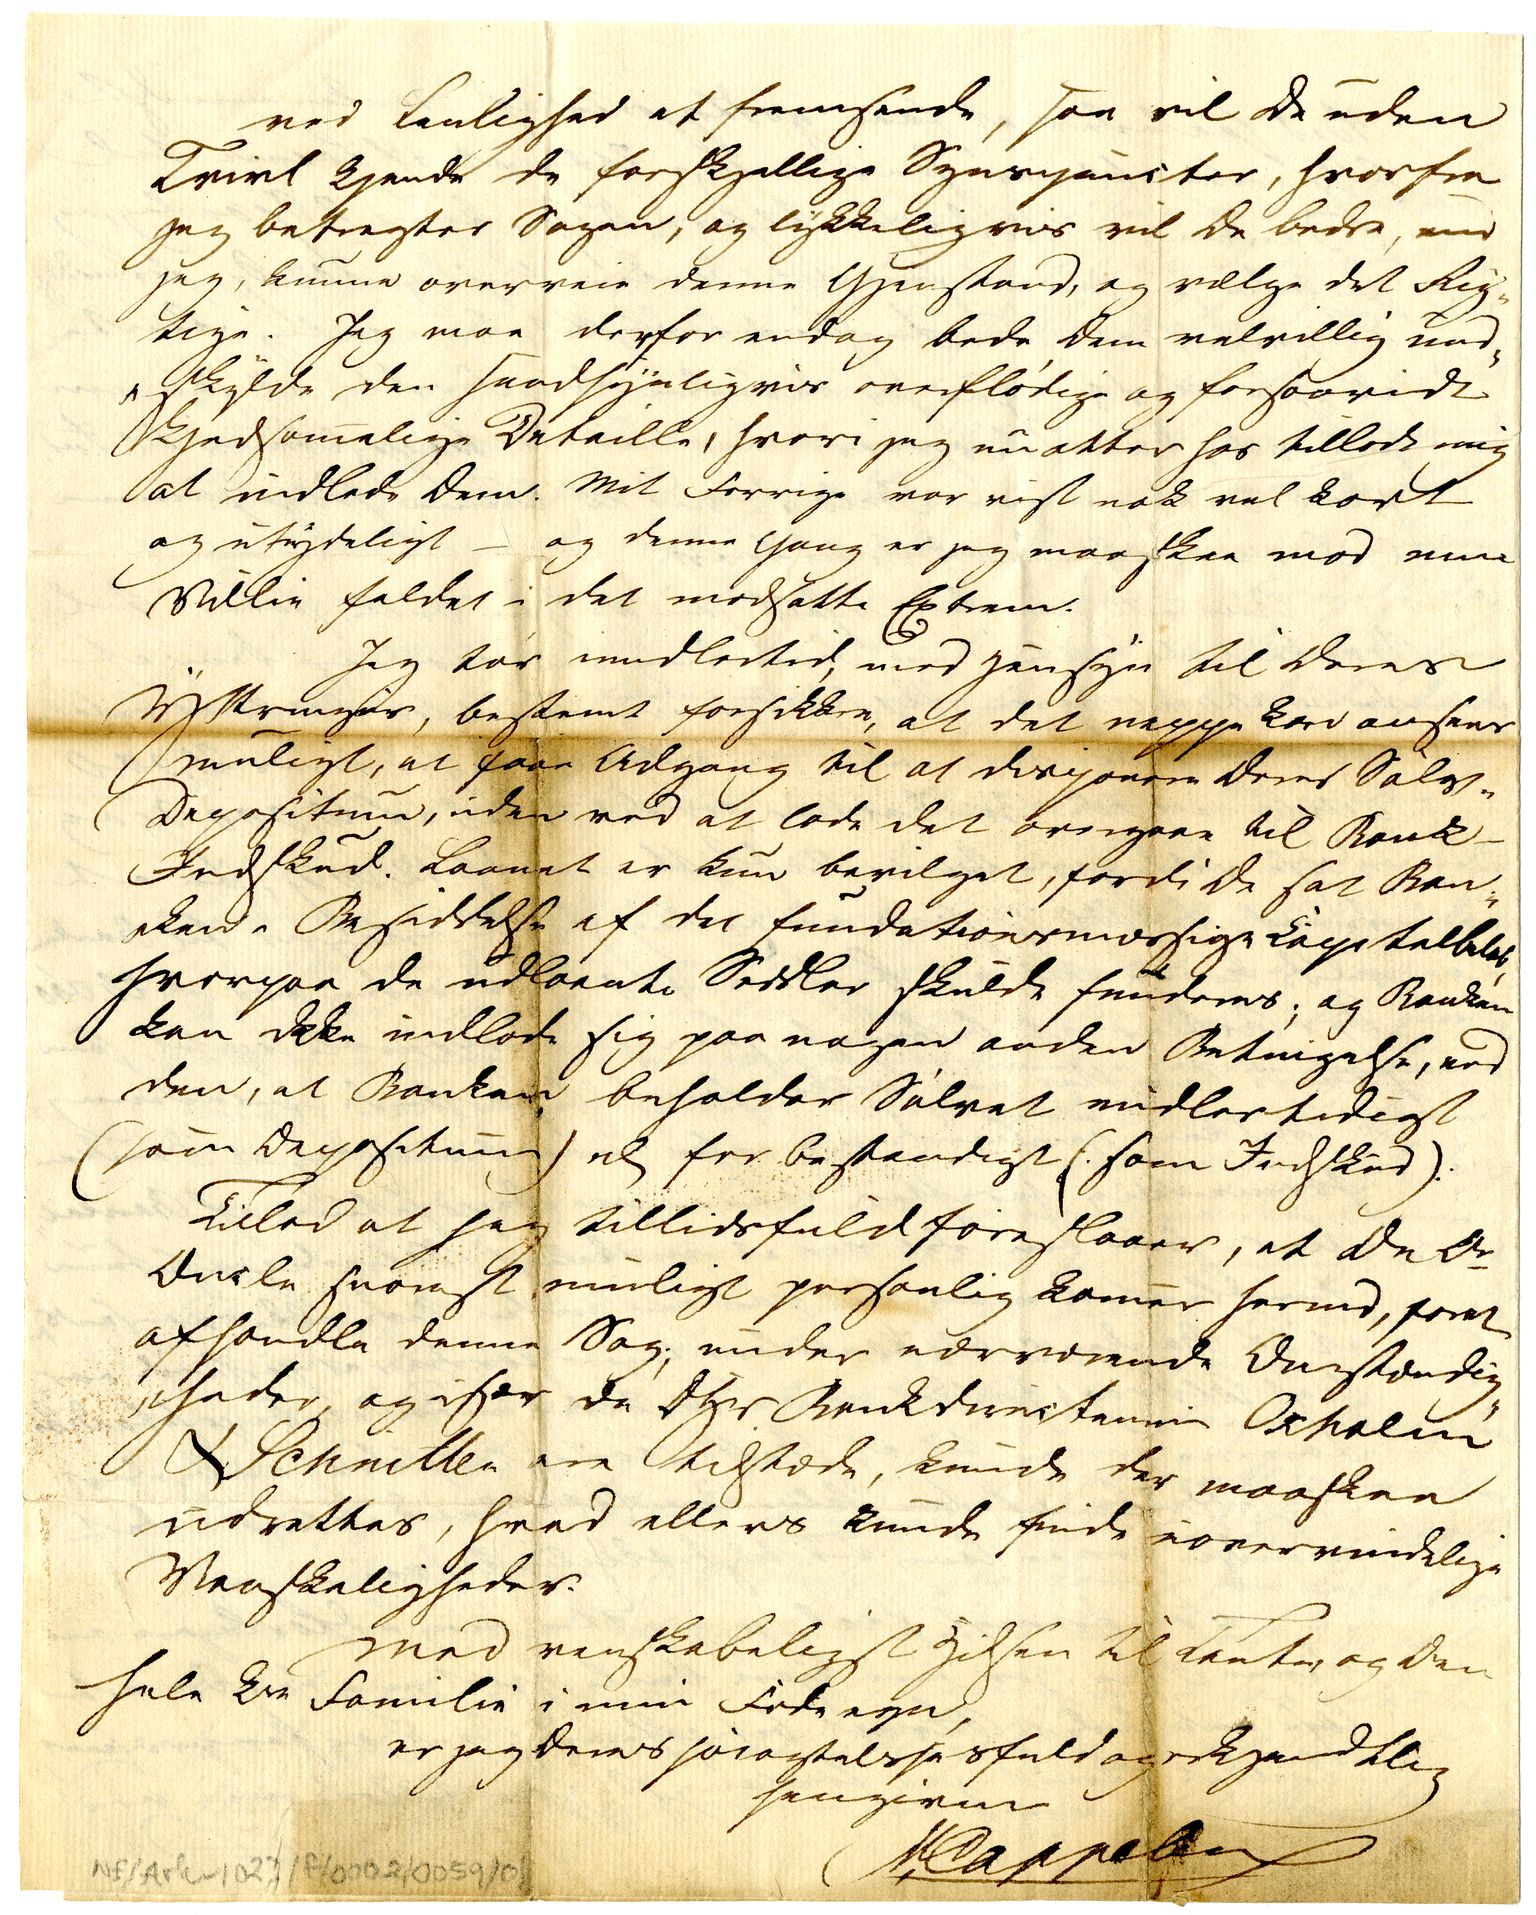 ved Leilighed at fremsende, saa vil De uden
Tvivl kjende de forskjellige Synspuncter, hvorfra
jeg betragter Sagen, og lykkeligviis vil De bedre, end
jeg, kunne overveie denne Gjenstand, og vælge det Rig„
tige. Jeg maa derfor endog bede Dem velvillig und„
„skylde den sandsynligviis overflødige og forsaavidt
kjedsommelige Detaille, hvori jeg nu atter har tilladt mig
at indlede Dem. Mit Forrige var vist nok vel kort
og utydeligt – og denne Gang er jeg maaskee mod min
Villie faldet i det modsatte Extrem.
Jeg tør imidlertid, med Hensyn til Deres
Yttringer, bestemt forsikkre, at det neppe kan ansees
muligt, at faae Adgang til at disponere Deres Sølv„
Depositum, uden ved at lade det overgaae til Bank–
Indskud. Laanet er kun bevilget, fordi De sat Ban„
ken i Besiddelse af det fundationsmæssige Capitalbeløb
hvorpaa de udlaante Sedler skulde funderes; og Banken
kan ikke indlade sig paa nogen anden Betingelse, end
den, at Banken beholder Sølvet midlertidigt
(som Depositum) el for bestandigt (: som Indskud).
Tillad at jeg tillidsfuld foreslaaer, at De Hr
Oncle snarest muligt personlig kommer herned, for at
afhandle denne Sag; under nærværende Omstændig„
„heder, og især da DHrr Bankdirecteurer Oxholm
& Schnitler ere tilstæde, kunde der maaskee
udrettes, hvad ellers kunde finde uovervindelige
Vanskeligheder.
Med venskabeligst Hilsen til Tante, og den
hele kre Familie i min Fødeegn,
er jeg Deres høiagtelsesfuld og erkjendtlig
hengivne
Cappelen
NF/Ark-1027/F/0002/0059/01